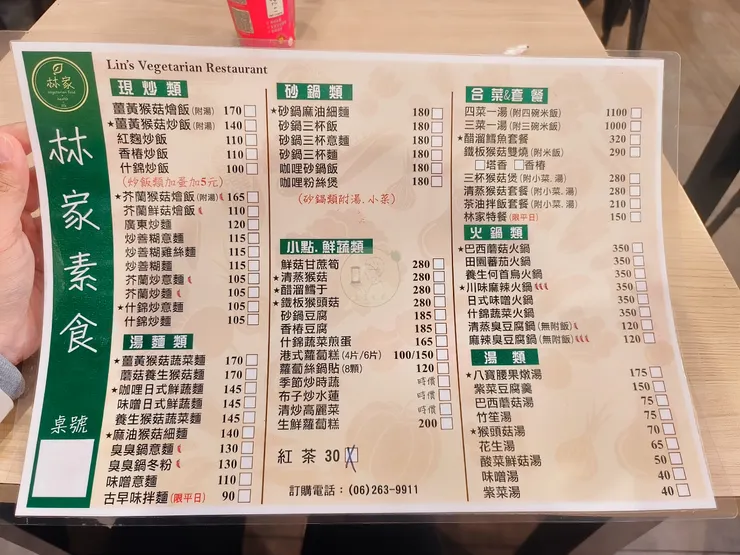 Lin's Vegetarian Restaurant
林家
林家素食
桌號
現炒類
薑黃猴菇燴飯(附湯) 170
★薑黃猴菇炒飯(附湯) 140
紅麴炒飯 110
香椿炒飯 110
什錦炒飯 100
(炒飯類加蛋加5元)
★芥蘭猴菇燴飯(附湯) 165
芥蘭鮮菇燴飯 110
廣東炒麵 120
炒善糊意麵 115
炒善糊雞絲麵 115
炒善糊麵 115
芥蘭炒意麵 105
芥蘭炒麵 105
★什錦炒意麵 105
什錦炒麵 105
湯麵類
★薑黃猴菇蔬菜麵 170
蘑菇養生猴菇麵 170
★咖哩日式鮮蔬麵 145
味噌日式鮮蔬麵 145
養生猴菇蔬菜麵 145
★麻油猴菇細麵 140
臭臭鍋意麵 130
臭臭鍋冬粉 130
味噌意麵 110
古早味拌麵(限平日) 90
砂鍋類
★砂鍋麻油細麵 180
砂鍋三杯飯 180
砂鍋三杯意麵 180
砂鍋三杯麵 180
咖哩砂鍋飯 180
咖哩粉絲煲 180
(砂鍋類附湯.小菜)
小點.鮮蔬類
鮮菇甘蔗筍 280
★清蒸猴菇 280
★醋溜鱈于 280
★鐵板猴頭菇 280
砂鍋豆腐 185
香椿豆腐 185
什錦蔬菜煎蛋 165
港式蘿蔔糕(4片/6片) 100/150
蘿蔔絲鍋貼(8顆) 120
季節炒時蔬 時價
布子炒水蓮 時價
清炒高麗菜 時價
生鮮蘿蔔糕 200
紅茶 30
訂購電話：(06)263-9911
合菜&套餐
四菜一湯(附四碗米飯) 1100
三菜一湯(附三碗米飯) 1000
★醋溜鱈魚套餐 320
鐵板猴菇雙燒(附米飯) 290
□塔香 □香椿
三杯猴菇煲(附小菜.湯) 280
清蒸猴菇套餐(附小菜.湯) 280
茶油拌飯套餐(附小菜.湯) 210
林家特餐(限平日) 150
火鍋類
★巴西蘑菇火鍋 350
田園蕃茄火鍋 350
養生何首烏火鍋 350
★川味麻辣火鍋 350
日式味噌火鍋 350
什錦蔬菜火鍋 350
清蒸臭豆腐鍋(無附飯) 120
麻辣臭豆腐鍋(無附飯) 120
湯類
★八寶腰果燉湯 175
紫菜豆腐羹 150
巴西蘑菇湯 75
竹笙湯 75
★猴頭菇湯 70
花生湯 65
酸菜鮮菇湯 50
味噌湯 40
紫菜湯 40